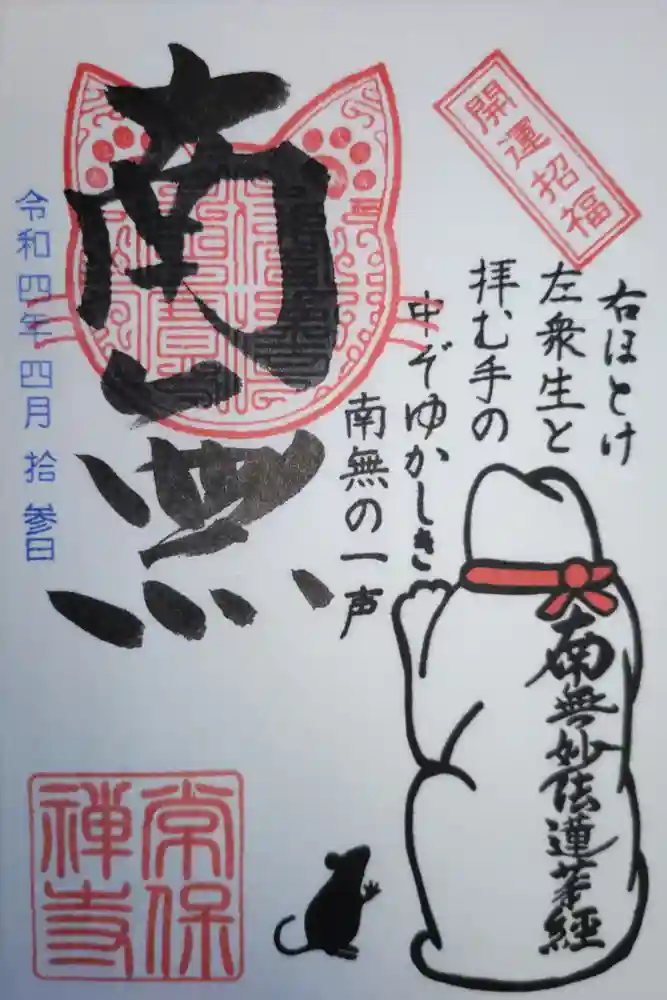 開運招福
右ほとけ
左衆生と
拝む手の
中ぞゆかしき
南無の一声
南無
令和四年四月拾参日
南無妙法蓮華経
常保
禅寺